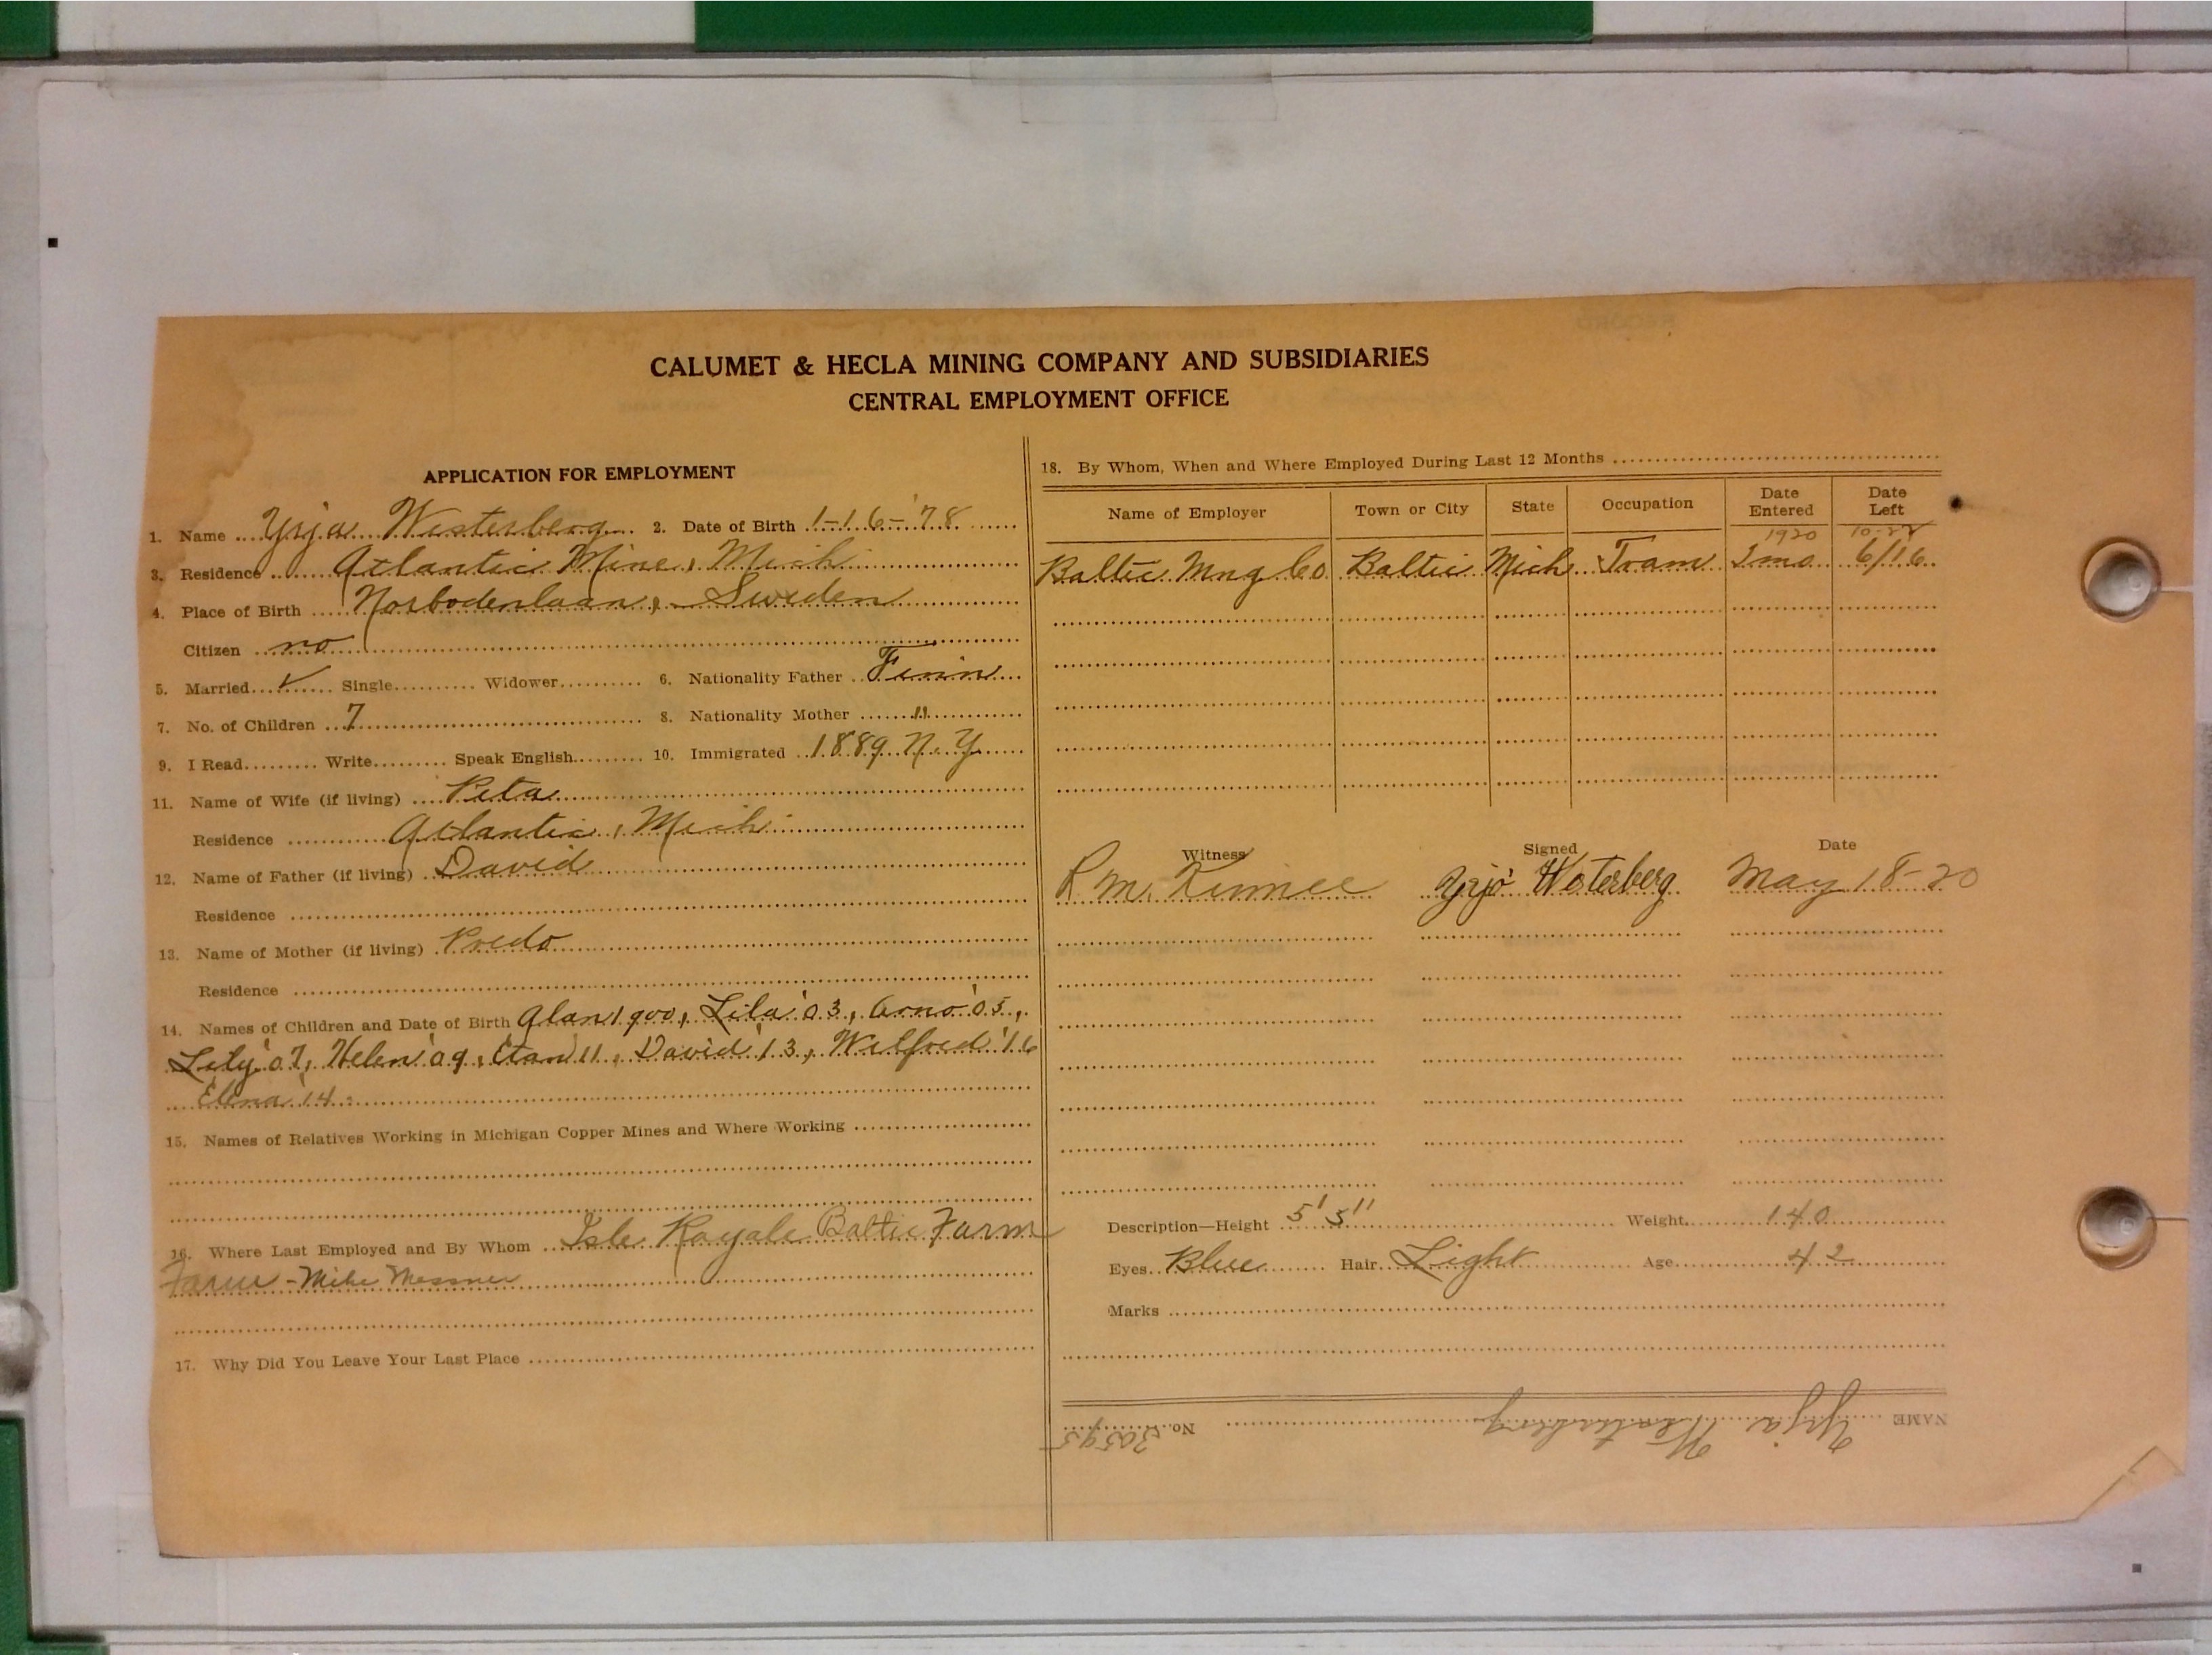 CALUMET & HECLA MINING COMPANY AND SUBSIDIARIES
CENTRAL EMPLOYMENT OFFICE
APPLICATION FOR EMPLOYMENT
1. Name Yrja Westerberg 2. Date of Birth 1-16-'78
3. Residence Atlantic Mine, Mich
4. Place of Birth Norbodenlaan, Sweden
Citizen no
5. Married ✓ Single Widower 6. Nationality Father Finn
7. No. of Children 7 8. Nationality Mother "
9. I Read Write Speak English 10. Immigrated 1889 N.Y.
11. Name of Wife (if living)
Residence Atlantic, Mich
12. Name of Father (if living) David
Residence
13. Name of Mother (if living)
Residence
14. Names of Children and Date of Birth 1900, Lila '03, Arno '05,
Lily '07, Helen '09, '11, David '13, Wilfred '16
Elena '14
15. Names of Relatives Working in Michigan Copper Mines and Where Working
16. Where Last Employed and By Whom Isle Royale Baltic Farm
Farm - Mike Messner
17. Why Did You Leave Your Last Place
18. By Whom, When and Where Employed During Last 12 Months
Name of Employer Town or City State Occupation Date Entered Date Left
1920 10-22
Baltic Mng Co Baltic Mich Tram 2mo 6/16
Witness Signed Date
R M. Yrjö Westerberg May 18-20
Description—Height 5'5" Weight 140
Eyes Blue Hair Light Age 42
Marks
NAME Yrja Westerberg No. 30595